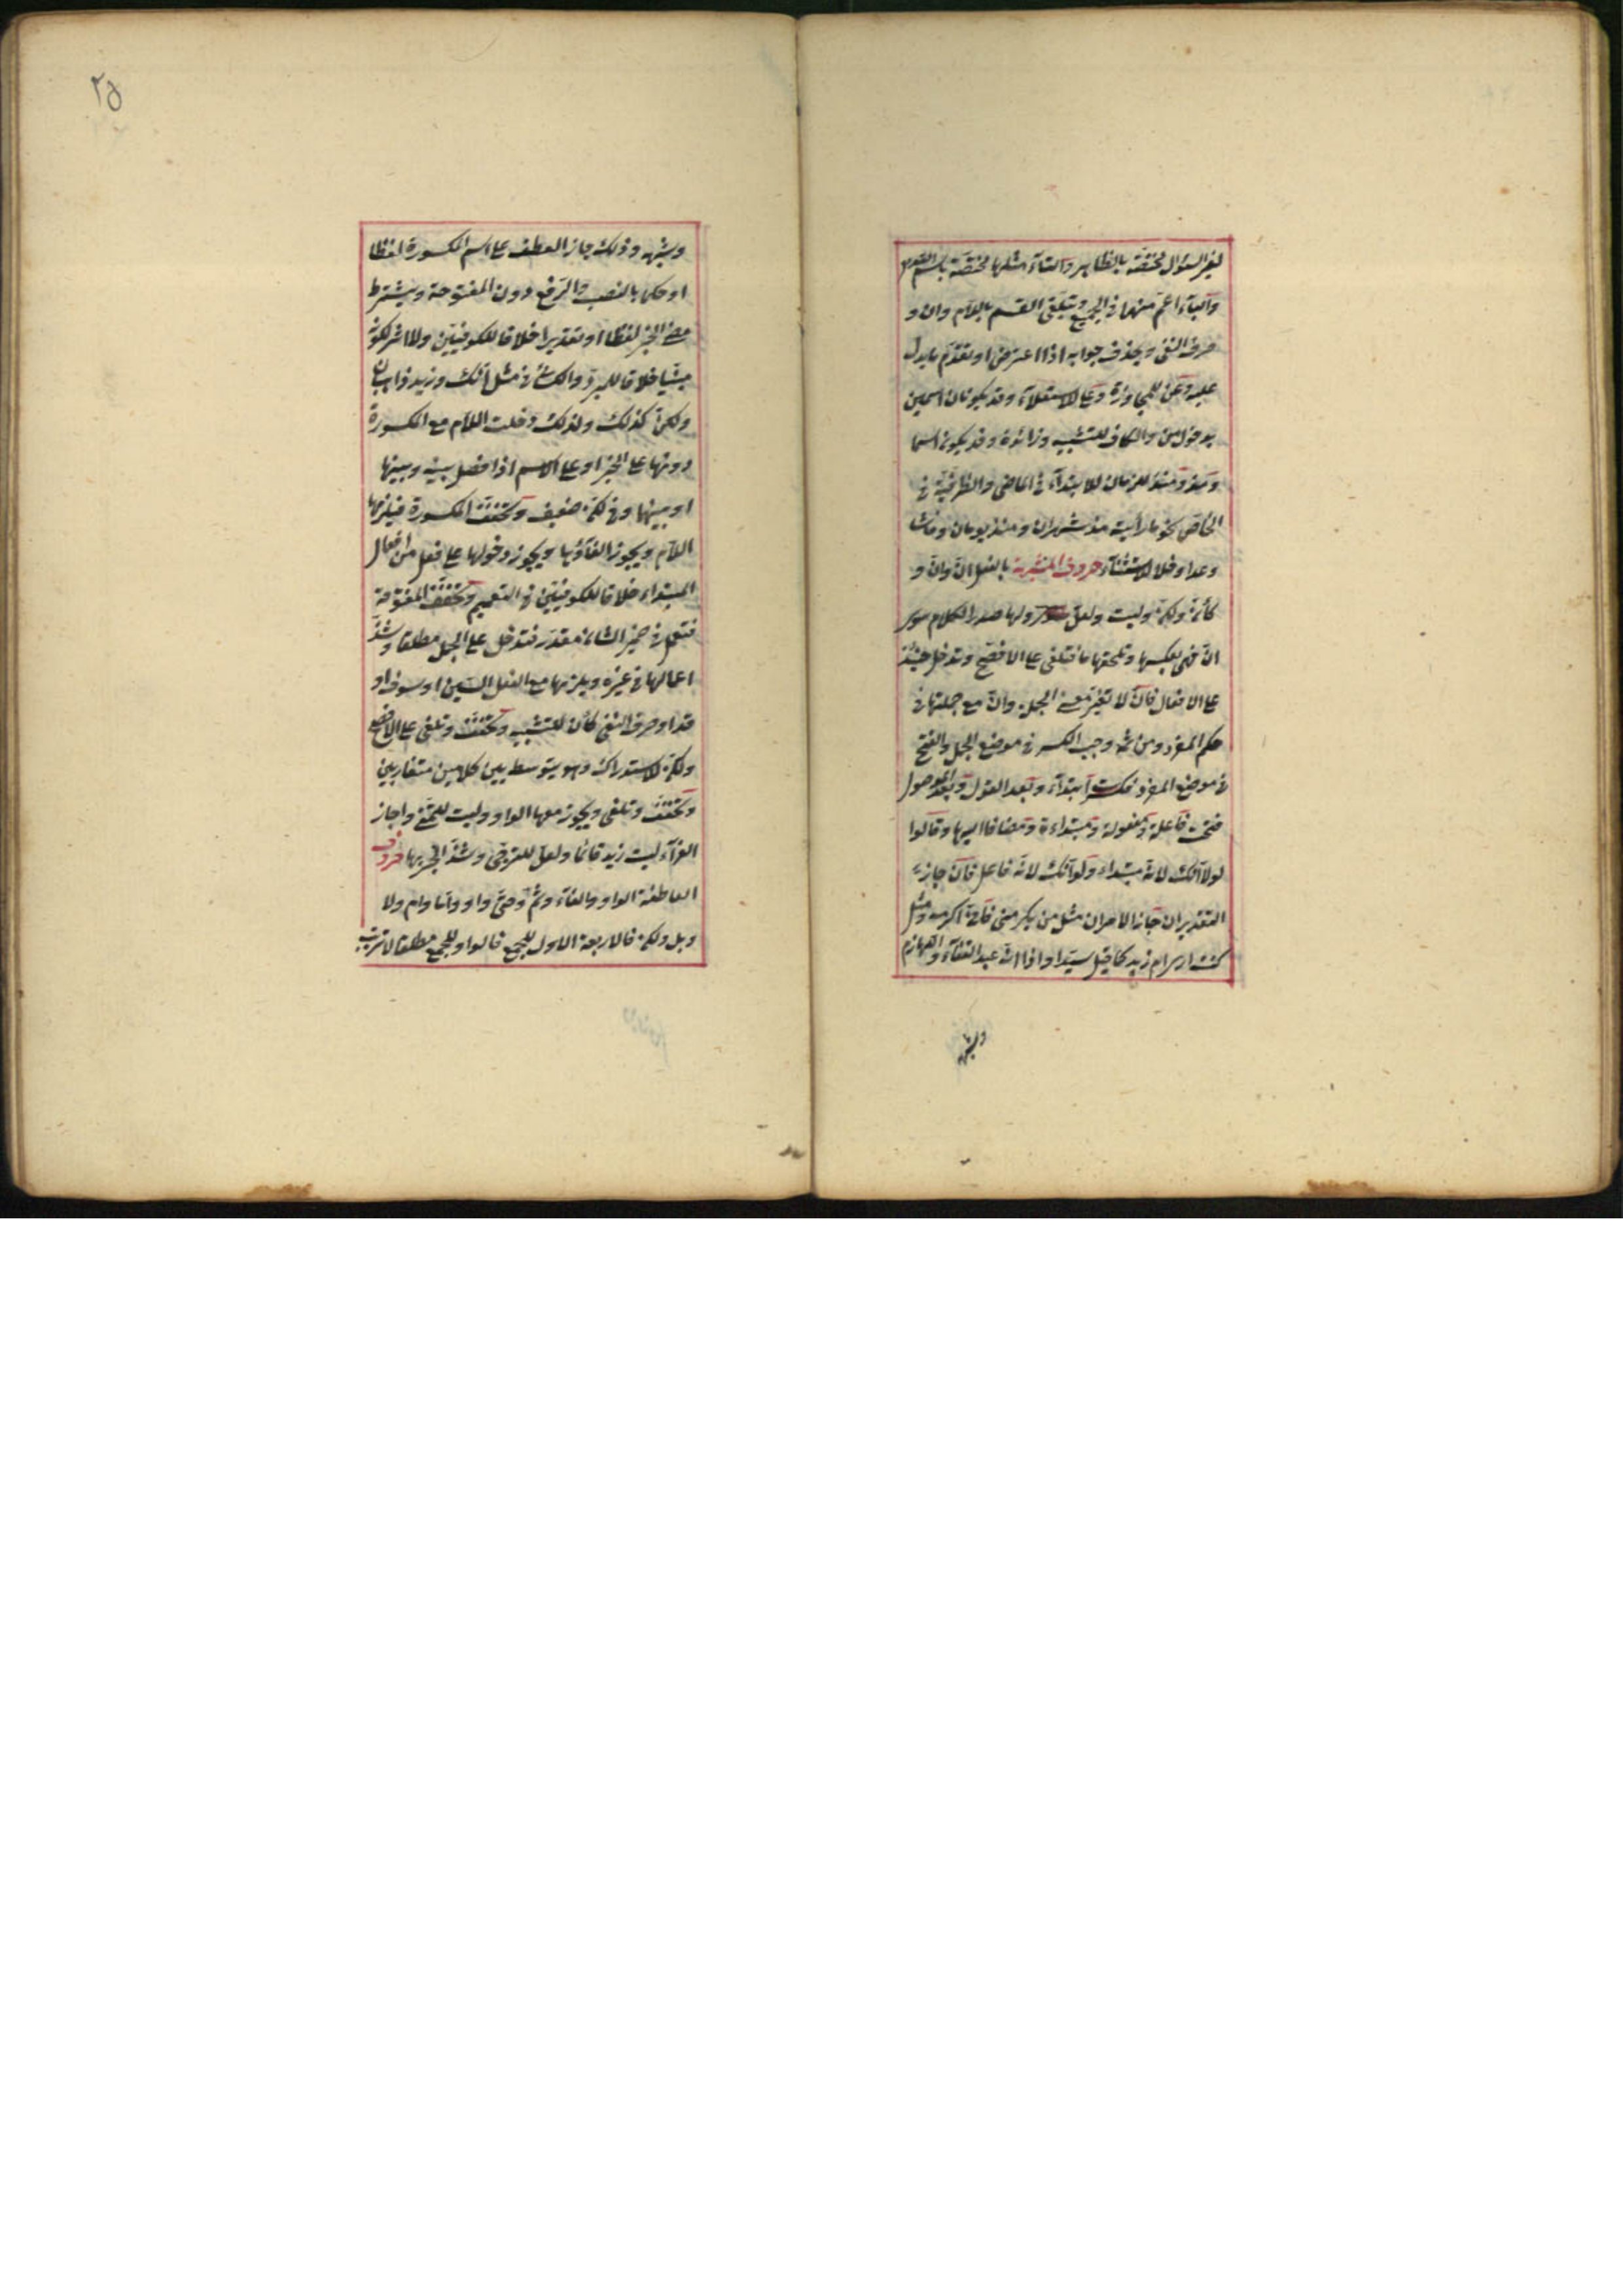 لغير السؤال مختصّة بالظاهر والتاء مثلها مختصّة باسم الله
والباء اعمّ منهما في الجميع ويتلقى القسم باللام وان و
حرف النفي ويحذف جوابه اذا اعترض او تقدّم ما يدل
عليه وعن للمجاوزة وعلى للاستعلاء وقد يكونان اسمين
بدخول من والكاف للتشبيه وزائدة وقد يكون اسما
ومذ ومنذ للزمان للابتداء في الماضي والظرفيّة في
الحاضر نحو ما رأيته مذ شهرنا ومنذ يومنا وحاشا
وعدا وخلا للاستثناء حروف المشبّهة بالفعل انّ وانّ و
كأنّ ولكنّ وليت ولعلّ ولها صدر الكلام سوى
انّ فهي بعكسها وتلحقها ما فتلغى على الافصح وتدخل حينئذ
على الافعال فانّ لا تغيّر معنى الجملة وانّ مع جملتها في
حكم المفرد ومن ثمّ وجب الكسر في موضع الجمل والفتح
في موضع المفرد فكسرت ابتداء وبعد القول وبعد الموصول
فتحت فاعلة ومفعولة ومبتداءة ومضافا اليها وقالوا
لولا انّك لانّه مبتداء ولو انّك لانّه فاعل فان جاز
التقديران جاز الامران مثل من يكرمني فانّي اكرمه ومثل
كنت ارى زيدا كما قيل سيّدا اذا انّه عبد القفاء واللهازم
وشبهه
٢٥
وشبهه ولذلك جاز العطف على اسم المكسورة لفظا
او حكما بالنصب والرفع دون المفتوحة ويشترط
مضي الخبر لفظا او تقديرا خلافا للكوفيّين ولا اثر لكونه
مبنيّا خلافا للمبرّد والكسائي في مثل انّك وزيد ذاهبان
ولكنّ كذلك ولذلك دخلت اللام مع المكسورة
دونها على الخبر او على الاسم اذا فصل بينه وبينها
او بينهما وفي لكنّ ضعيف وتخفّف المكسورة فيلزمها
اللام ويجوز الغاؤها ويجوز دخولها على فعل من افعال
المبتداء خلافا للكوفيّين في التعميم وتخفّف المفتوحة
فتعمل في ضمير الشان مقدّر فتدخل على الجمل مطلقا وشذّ
اعمالها في غيره ويلزمها مع الفعل السين او سوف او
قد او حرف النفي كأنّ للتشبيه وتخفّف وتلغى على الافصح
ولكنّ للاستدراك وهو يتوسط بين كلامين متغايرين
وتخفّف وتلغى ويجوز معها الواو وليت للتمنّي واجاز
الفرّاء ليت زيدا قائما ولعلّ للترجّي وشذّ الجرّ بها حروف
العاطفة الواو والفاء وثمّ وحتّى واو وامّا وام ولا
وبل ولكن فالاربعة الاول للجمع فالواو للجمع مطلقا لا ترتيب